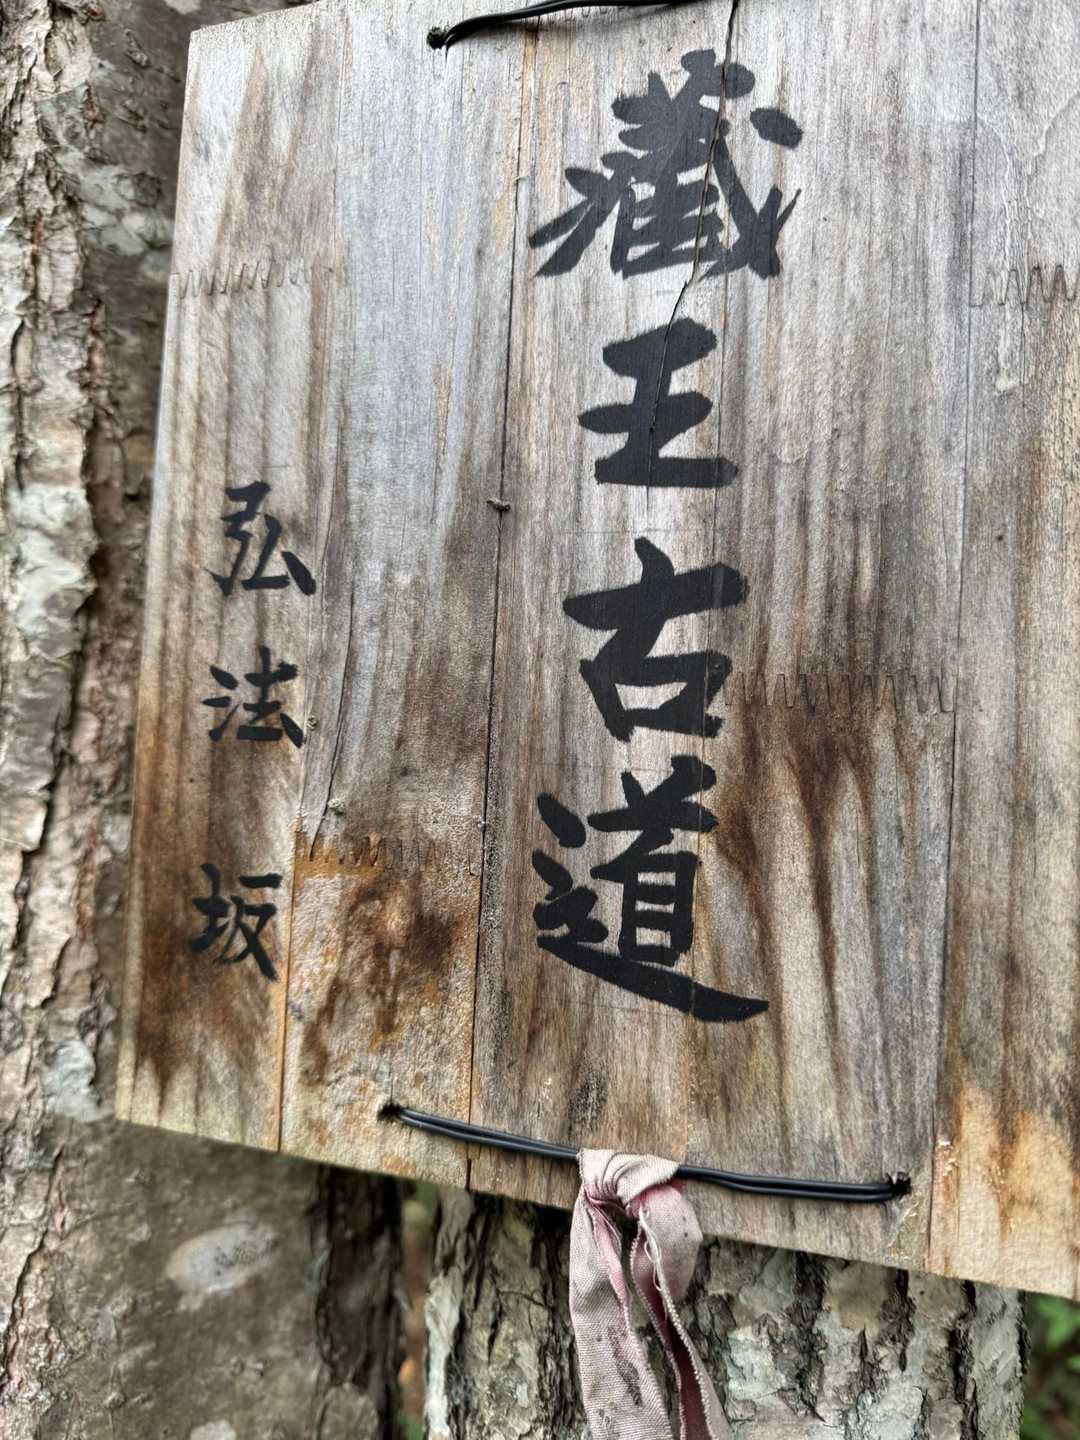 蔵王古道
弘法坂